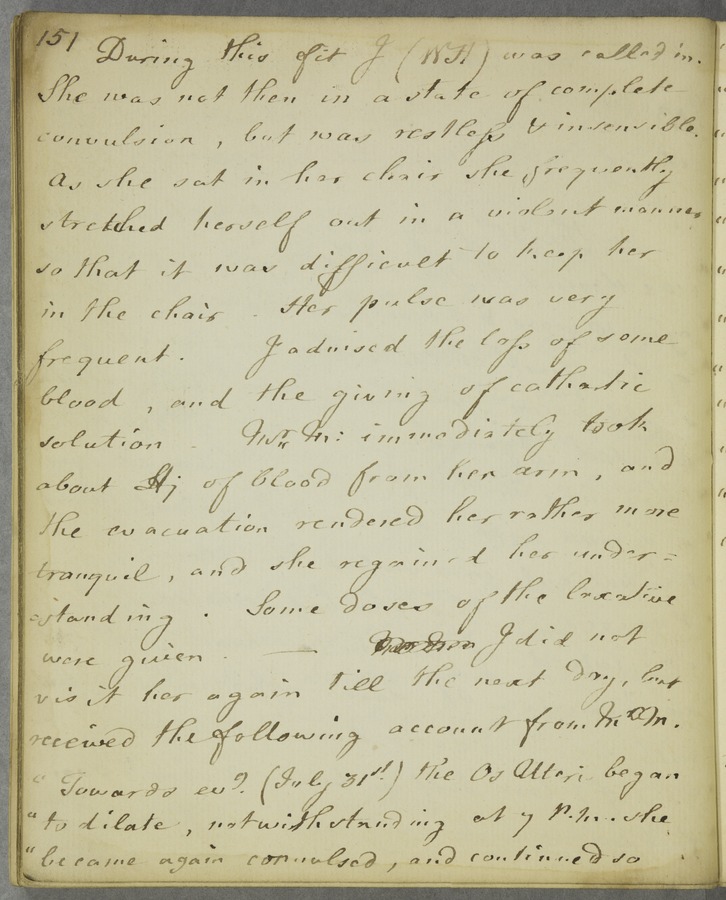 151 During this fit J (WH) was called in.
She was not then in a state of complete
convulsion, but was restless & insensible.
As she sat in her chair she frequently
stretched herself out in a violent manner
so that it was difficult to keep her
in the chair. Her pulse was very
frequent. I advised the loss of some
blood, and the giving of cathartic
solution - Mr. M: immediately took
about j of blood from her arm, and
the evacuation rendered her rather more
tranquil, and she regained her under=
standing. Some doses of the laxative
were given. — I did not
visit her again till the next day, but
received the following account from Mr. M.
"Towards evg. (July 31st.) the Os Uteri began
"to dilate, notwithstanding at 7 P.M. she
"became again convulsed, and continued so